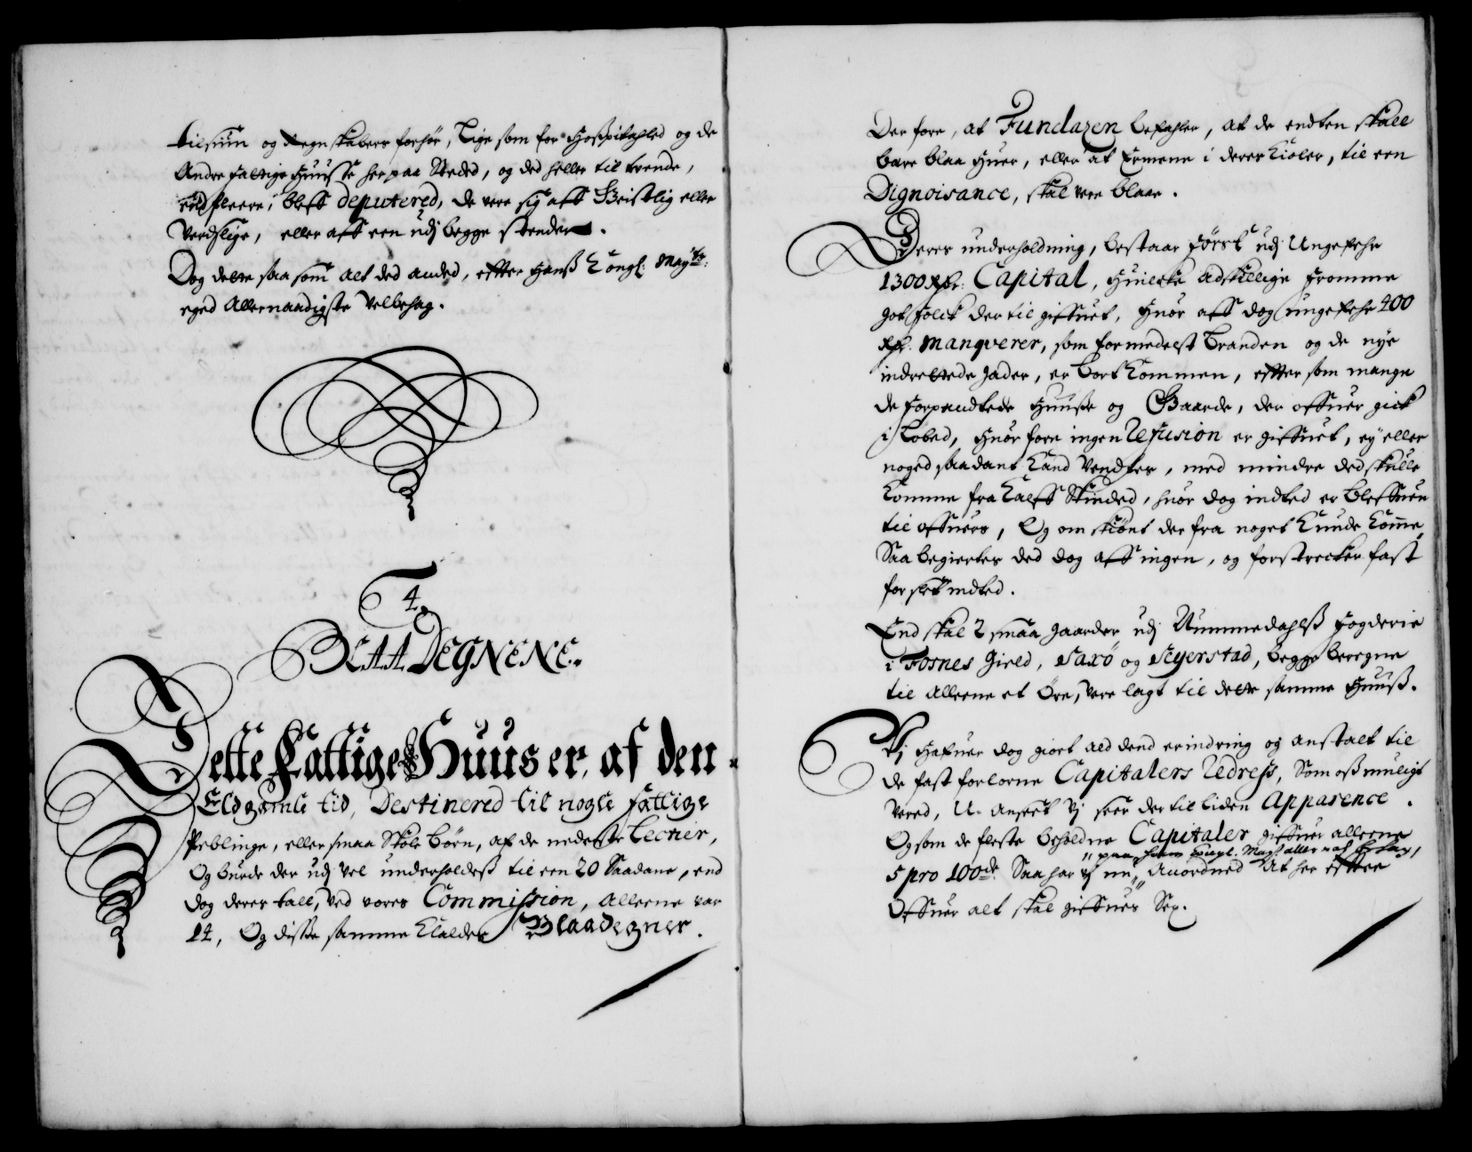 tilsiun og Regnskabers forhør, Lige som for Hospitahled og de
Andre fattige Huusse her paa Steded, og ded heller til trende,
end fleere, bleff deputered, de vere sig aff Geistlig eller
Verdslige, eller aff een udj begge stender.
Dog dette saa som alt ded anded, effter Hanß Kongl: May:tz
eged Allernaadigste Velbehag.
4.
BLAA DEGNENE.
Dette Fattige Huus er, af den
Eldgamle tid, Destinered til nogle fattige
Peblinge, eller smaa Skole børn, af de nederste Lectier,
Og burde der udj vel underholdeß til een 20 Saadane, end
dog deres tall, ved vores Commission, alleene var
14, Og disse samme Kaldes Blaadegner.
Der fore, at Fundazen befahler, at de endten skall
bære blaa Huer, eller at Ermene i deres Kioler, til een
Dignoisance, skal vere blaae.
Deres underholdning, bestaar først udj Ungefehr
1300 Rdr: Capital, Huilcke adskillige fromme
got folck der til giffuet, Huor aff dog ungefehr 400
Rdr. manqverer, som formedelst Branden og de nye
indrettede gader, er bort kommen, effter som mange
de forpandtede Huuße og Gaarde, der offuer gick
i løbed, Huor fore ingen Refusion er giffuet, ey eller
noged saadant kand ventes, med mindre ded skulle
komme fra Kalff Skinded, huor dog indted er bleffuen
til offuers, Og om skiønt der fra noget kunde komme,
Saa begierter ded dog aff ingen, og forstrecker fast
for slet indted.
End skal 2 smaa gaarder udj Nummedahlß fogderie
i Fosnes Gield, Saxø og Seyerstad, begge beregne
til alleene et Øre, vere lagt til dette samme Huuß.
Vj hafuer dog giort ald dend erindring og anstalt til
de fast forlorne Capitalers Redress, Som oß muligt
vered, U-anseet vj seer der til liden Apparence.
Og som de fleste beholdne Capitaler, giffuer alleene
paa hans Kongl. May:tz aller naad. behag,
5 pro 100de. Saa har vj nu, Anordned At her effter
Offuer alt skal giffues Sex.